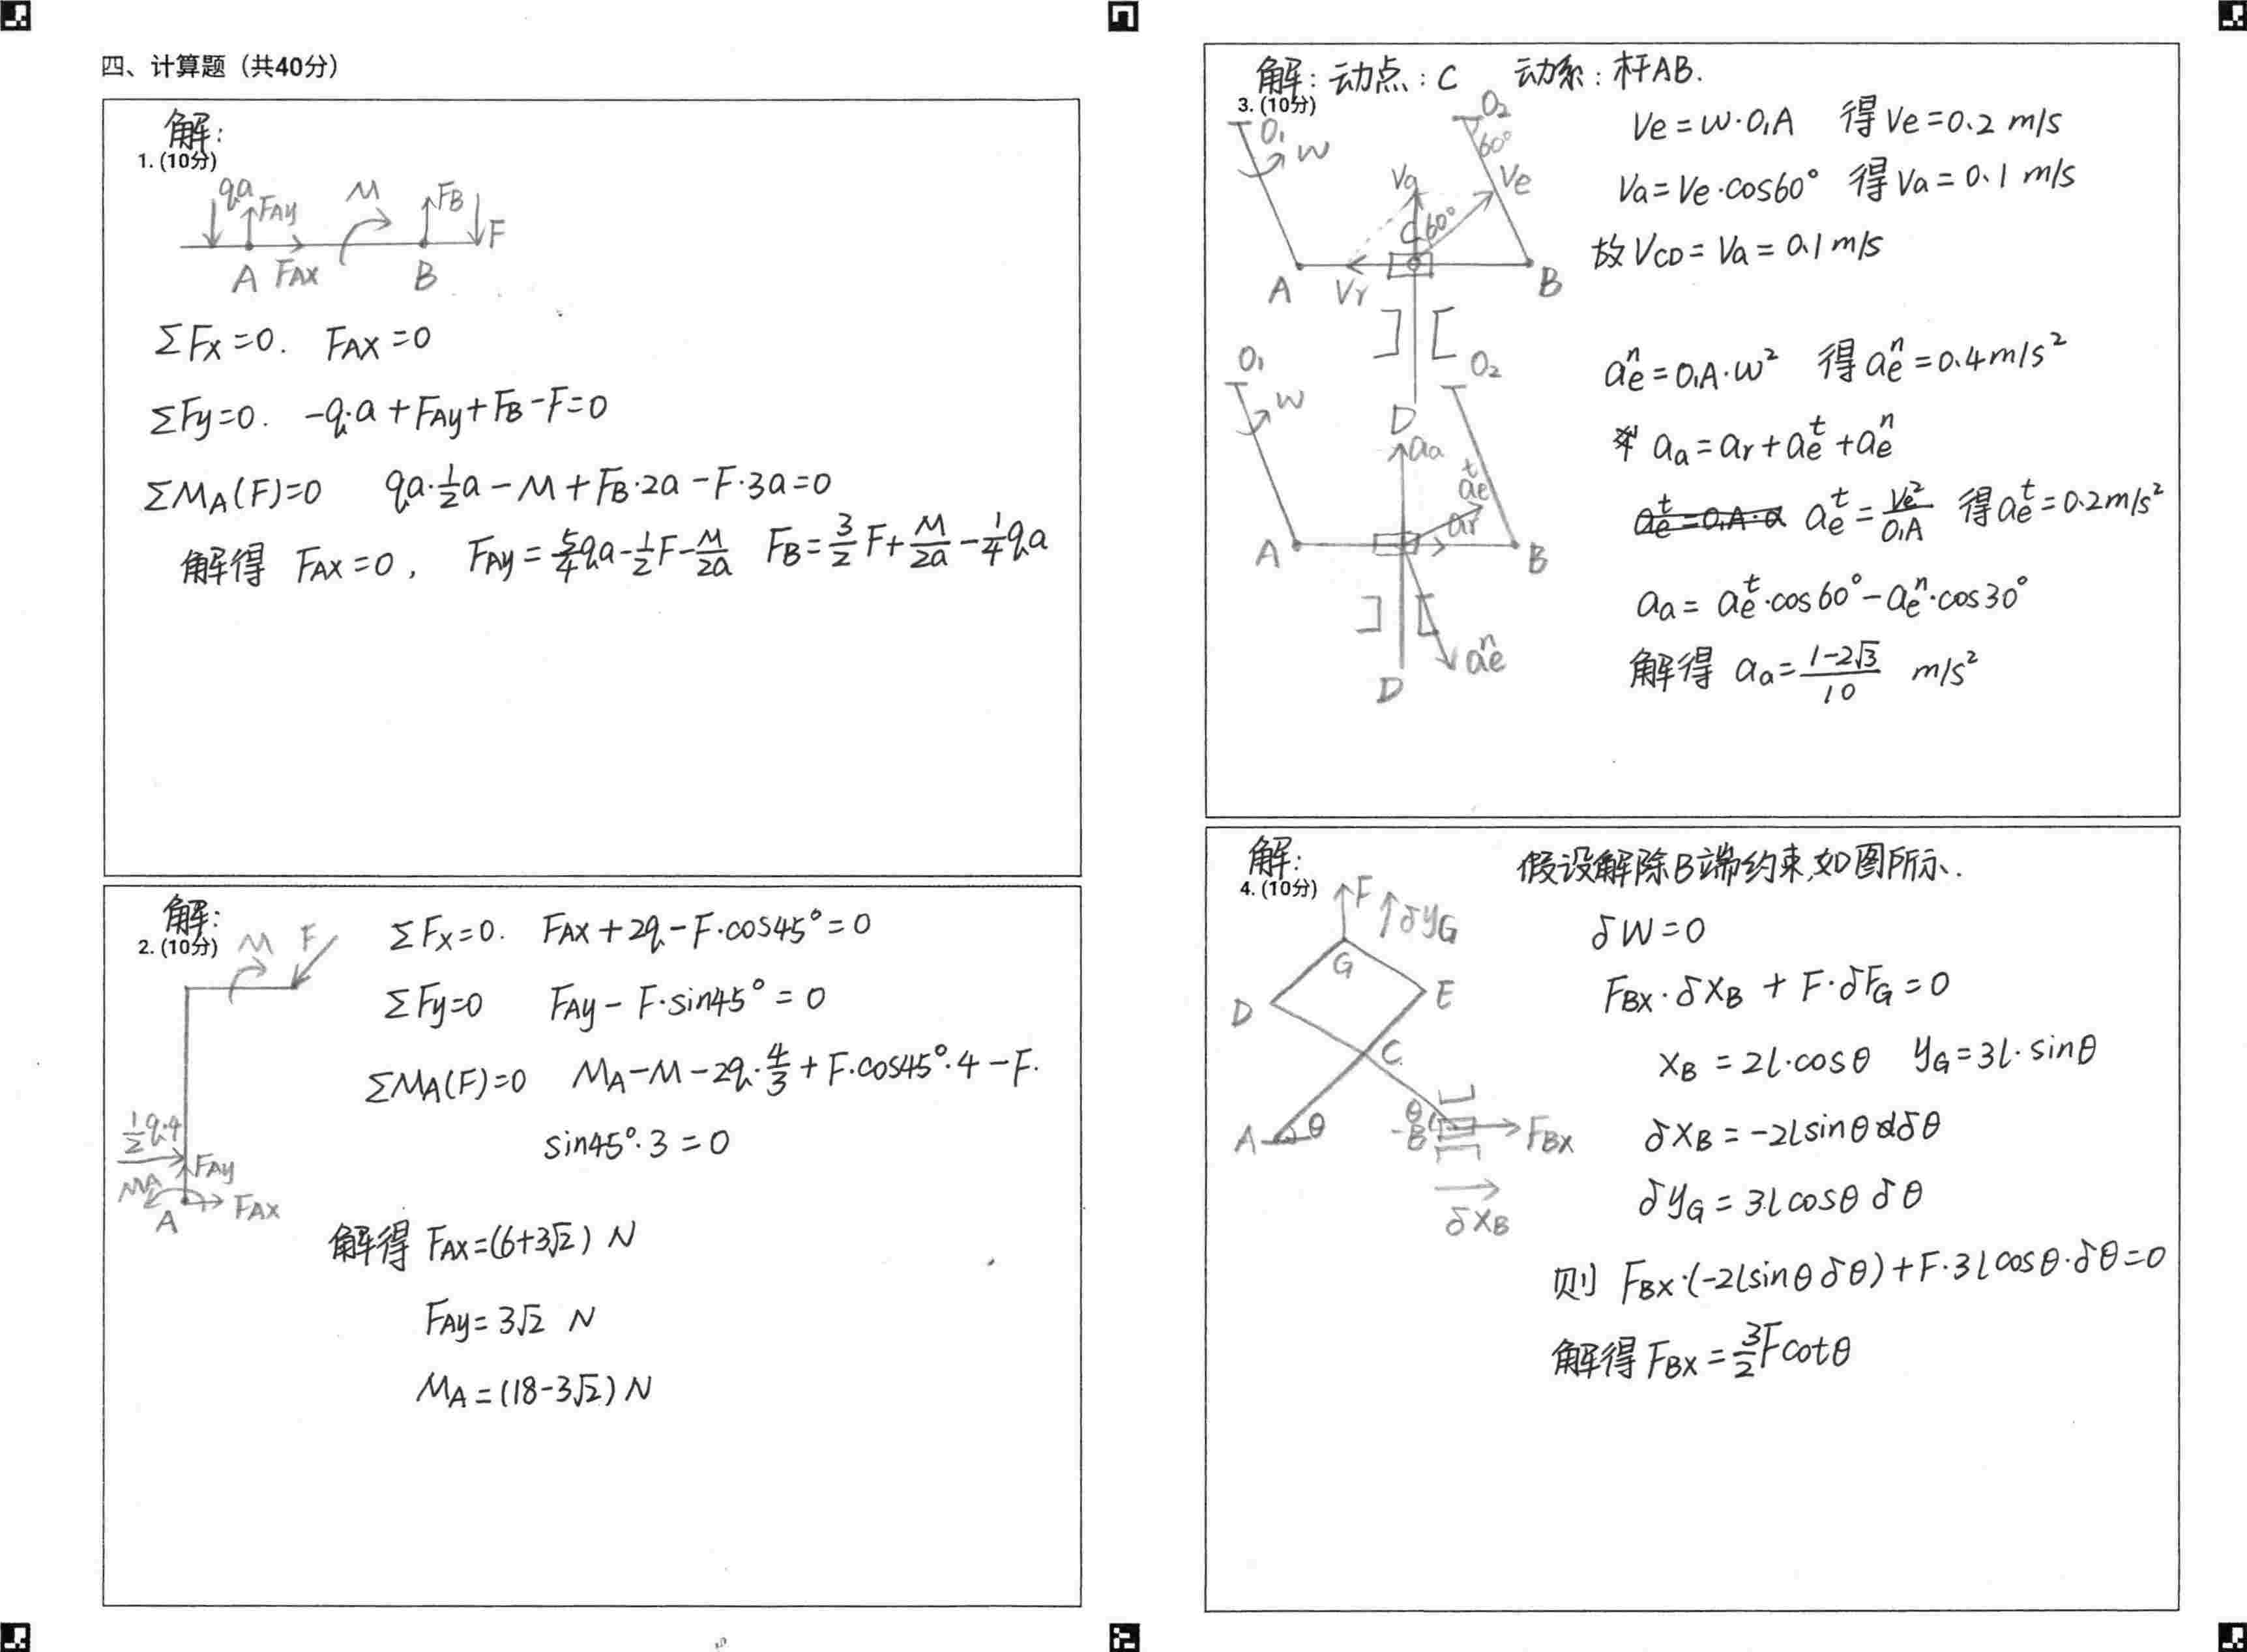 四、计算题（共40分）
解:
1. (10分)
qa FAy M FB F
A FAx B
ΣFx=0. FAx=0
ΣFy=0. -q·a+FAy+FB-F=0
ΣMA(F)=0 qa·½a-M+FB·2a-F·3a=0
解得 FAx=0, FAy=5/4qa-½F-M/2a FB=3/2F+M/2a-¼qa
解:
2. (10分)
M F
ΣFx=0. FAx+2q-F·cos45°=0
ΣFy=0 FAy-F·sin45°=0
ΣMA(F)=0 MA-M-2q·4/3+F·cos45°·4-F·
sin45°·3=0
½q·4
MA FAy
A FAx
解得 FAx=(6+3√2) N
FAy=3√2 N
MA=(18-3√2) N
解: 动点: C 动系: 杆AB.
3. (10分)
O₁ ω O₂ 60°
Va Ve C 60°
A Vr B
D
Ve=ω·O₁A 得Ve=0.2 m/s
Va=Ve·cos60° 得Va=0.1 m/s
故VCD=Va=0.1m/s
O₁ ω O₂
aa aeᵗ ar
A B
aeⁿ
D
aeⁿ=O₁A·ω² 得aeⁿ=0.4m/s²
aa=ar+aeᵗ+aeⁿ
aeᵗ=O₁A·α aeᵗ=Ve²/O₁A 得aeᵗ=0.2m/s²
aa=aeᵗ·cos60°-aeⁿ·cos30°
解得 aa=(1-2√3)/10 m/s²
解:
4. (10分)
假设解除B端约束,如图所示.
F δyG
G
D E
C
A θ θ B FBx
δxB
δW=0
FBx·δxB+F·δFG=0
xB=2l·cosθ yG=3l·sinθ
δxB=-2lsinθdδθ
δyG=3lcosθδθ
则 FBx·(-2lsinθδθ)+F·3lcosθ·δθ=0
解得FBx=3/2Fcotθ